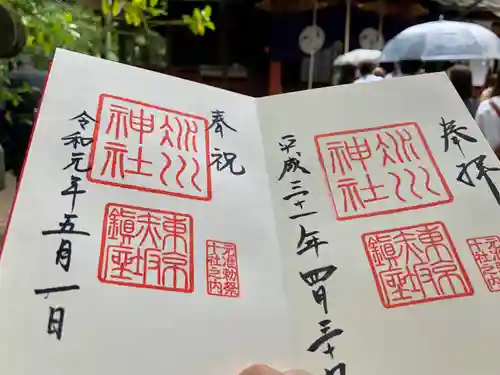 奉拝
氷川
神社
東京
赤坂
鎮座
平成三十一年四月三十日
奉祝
氷川
神社
東京
赤坂
鎮座
元准勅祭
十社之内
令和元年五月一日